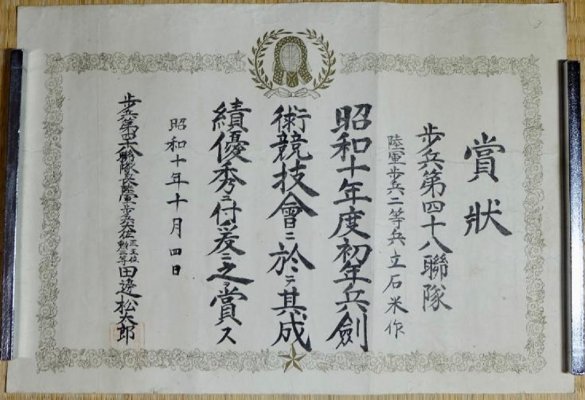 賞狀
步兵第四十八聯隊
陸軍步兵二等兵立石米作
昭和十年度初年兵劍
術競技會ニ於テ其成
績優秀ニ付爰ニ之賞ス
昭和十年十月四日
步兵第四十八聯隊長陸軍步兵大佐 田邊松太郎